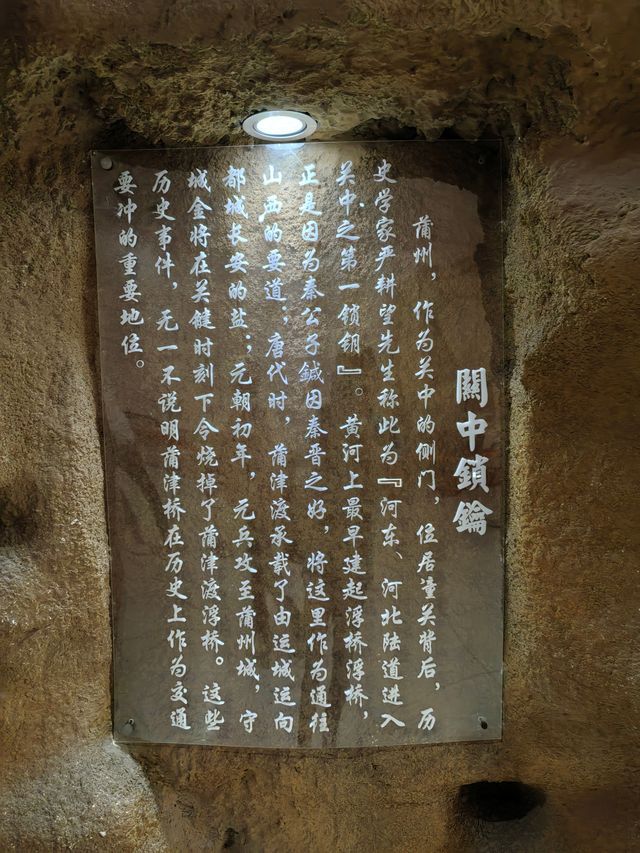 關中鎖鑰
蒲州，作为关中的侧门，位居潼关背后，历
史学家严耕望先生称此为『河东、河北陆道进入
关中之第一锁钥』。黄河上最早建起浮桥浮桥，
正是因为秦公子鍼因秦晋之好，将这里作为通往
山西的要道；唐代时，蒲津渡承载了由运城运向
都城长安的盐；元朝初年，元兵攻至蒲州城，守
城金将在关健时刻下令烧掉了蒲津渡浮桥。这些
历史事件，无一不说明蒲津桥在历史上作为交通
要冲的重要地位。